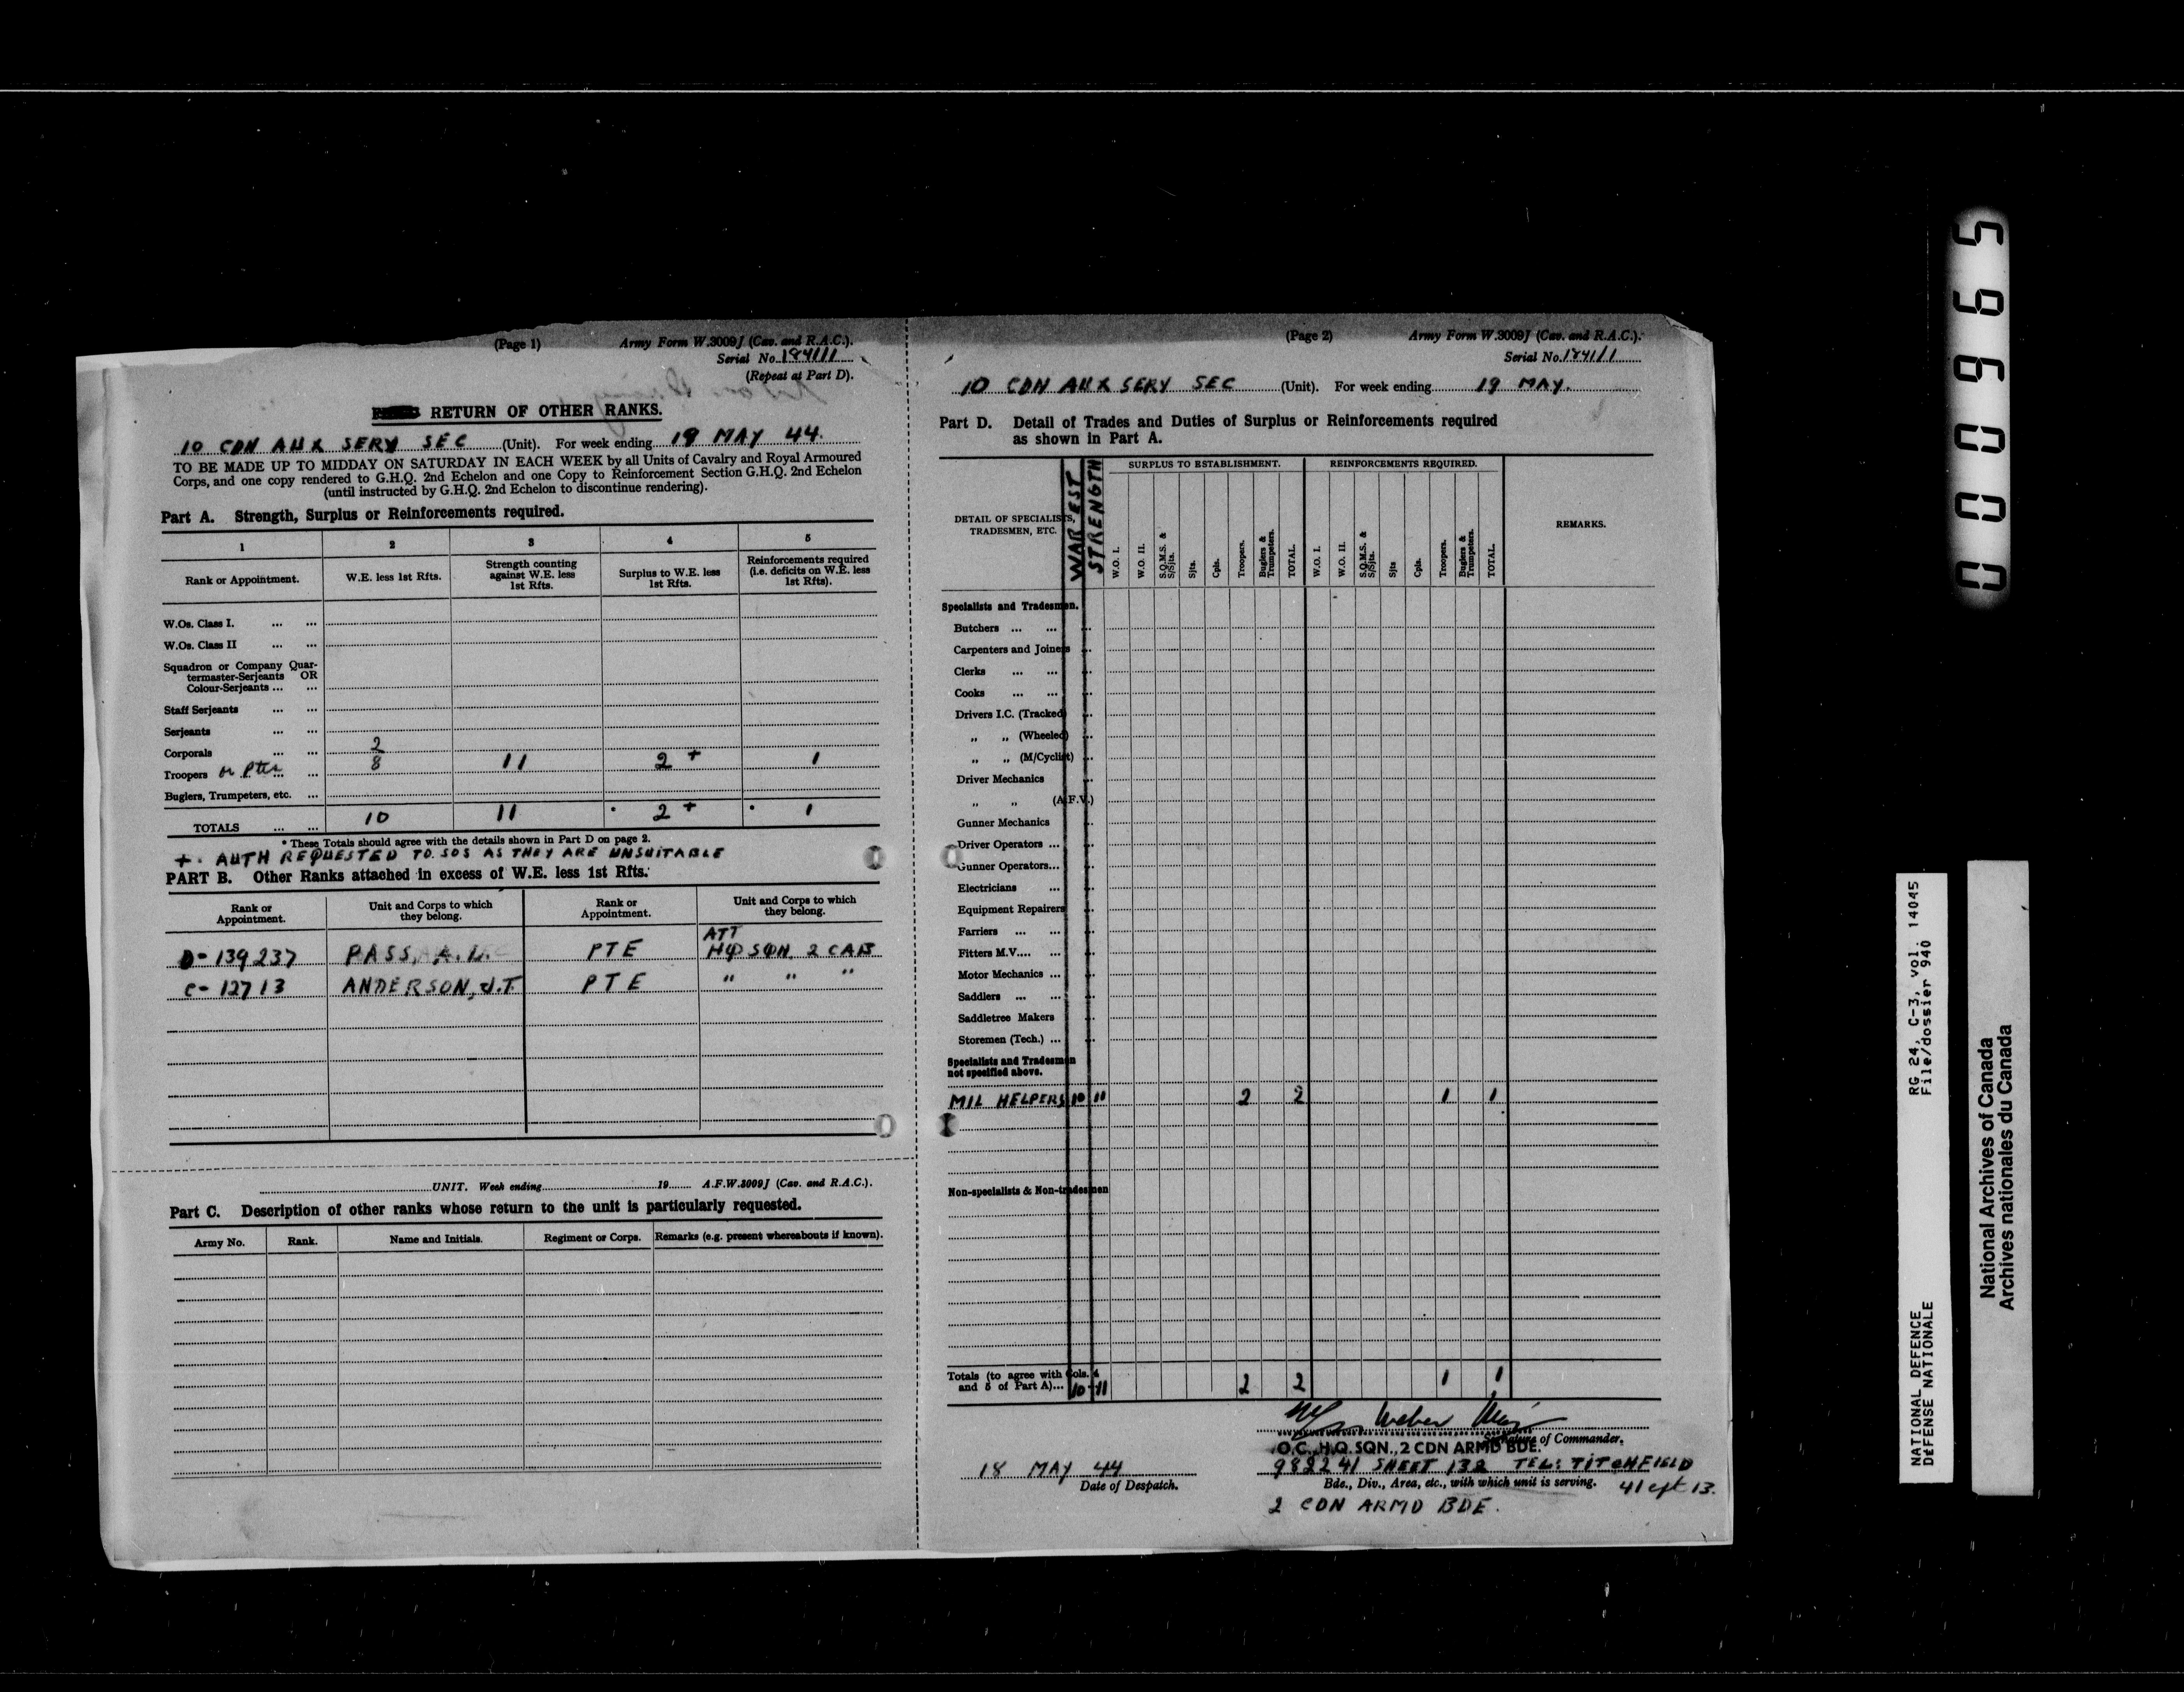 (Page 1) Army Form W.3009J (Cav. and R.A.C.).
Serial No. 184/1/1
(Repeat at Part D).
RETURN OF OTHER RANKS.
10 CDN AUX SERV SEC (Unit). For week ending 19 MAY 44.
TO BE MADE UP TO MIDDAY ON SATURDAY IN EACH WEEK by all Units of Cavalry and Royal Armoured
Corps, and one copy rendered to G.H.Q. 2nd Echelon and one Copy to Reinforcement Section G.H.Q. 2nd Echelon
(until instructed by G.H.Q. 2nd Echelon to discontinue rendering).
Part A. Strength, Surplus or Reinforcements required.
1 2 3 4 5
Rank or Appointment. W.E. less 1st Rfts. Strength counting against W.E. less 1st Rfts. Surplus to W.E. less 1st Rfts. Reinforcements required (i.e. deficits on W.E. less 1st Rfts).
W.Os. Class I. ... ...
W.Os. Class II ... ...
Squadron or Company Quar-
termaster-Serjeants OR
Colour-Serjeants ... ...
Staff Serjeants ... ...
Serjeants ... ...
Corporals ... ... 2
Troopers or Ptes ... ... 8 11 2 + 1
Buglers, Trumpeters, etc. ...
TOTALS ... ... 10 11 * 2 + * 1
* These Totals should agree with the details shown in Part D on page 2.
+. AUTH REQUESTED TO SOS AS THEY ARE UNSUITABLE
PART B. Other Ranks attached in excess of W.E. less 1st Rfts.
Rank or Appointment. Unit and Corps to which they belong. Rank or Appointment. Unit and Corps to which they belong.
ATT
D-139237 PASS, A. L. PTE HQ SQN 2 CAB
C-12713 ANDERSON, J.T PTE " " "
UNIT. Week ending 19 A.F.W.3009J (Cav. and R.A.C.).
Part C. Description of other ranks whose return to the unit is particularly requested.
Army No. Rank. Name and Initials. Regiment or Corps. Remarks (e.g. present whereabouts if known).
(Page 2) Army Form W.3009J (Cav. and R.A.C.).
Serial No. 184/1/1
10 CDN AUX SERV SEC (Unit). For week ending 19 MAY.
Part D. Detail of Trades and Duties of Surplus or Reinforcements required
as shown in Part A.
DETAIL OF SPECIALISTS, TRADESMEN, ETC. WAR EST STRENGTH SURPLUS TO ESTABLISHMENT. REINFORCEMENTS REQUIRED. REMARKS.
W.O. I. W.O. II. S.Q.M.S. & S/Sjts. Sjts. Cpls. Troopers. Buglers & Trumpeters. TOTAL. W.O. I. W.O. II. S.Q.M.S. & S/Sjts. Sjts Cpls. Troopers. Buglers & Trumpeters. TOTAL.
Specialists and Tradesmen.
Butchers ... ... ...
Carpenters and Joiners ...
Clerks ... ... ...
Cooks ... ... ...
Drivers I.C. (Tracked) ...
" " (Wheeled) ...
" " (M/Cyclist) ...
Driver Mechanics ...
" " (A.F.V.)
Gunner Mechanics ...
Driver Operators ... ...
Gunner Operators... ...
Electricians ... ...
Equipment Repairers ...
Farriers ... ... ...
Fitters M.V.... ... ...
Motor Mechanics ... ...
Saddlers ... ... ...
Saddletree Makers ...
Storemen (Tech.) ... ...
Specialists and Tradesmen
not specified above.
MIL HELPERS 10 11 2 2 1 1
Non-specialists & Non-tradesmen
Totals (to agree with Cols. 4
and 5 of Part A)... 10 11 2 2 1 1
Weber Maj
Signature of Commander.
O.C., H.Q. SQN., 2 CDN ARMD BDE.
18 MAY 44 982241 SHEET 132 TEL: TITCHFIELD
Date of Despatch. Bde., Div., Area, etc., with which unit is serving. 41 ext 13.
2 CDN ARMD BDE.
000965
RG 24, C-3, vol. 14045
File/dossier 940
NATIONAL DEFENCE
DÉFENSE NATIONALE
National Archives of Canada
Archives nationales du Canada